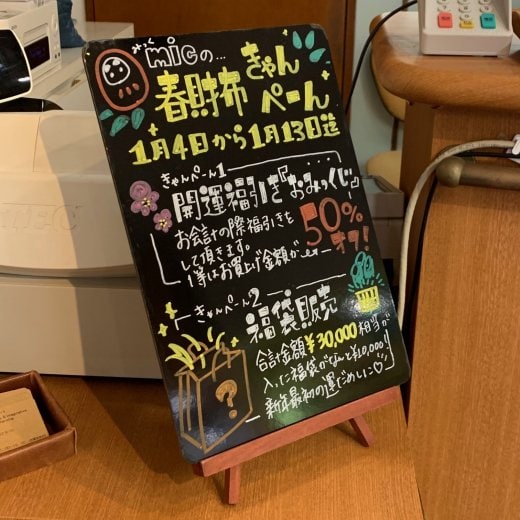 みっく
micの…
春財布きゃんぺーん
1月4日から1月13日迄
きゃんぺーん1
開運福引き『おみっくじ』
お会計の際福引きを
して頂きます。
1等はお買上げ金額が
50%
オフ!
きゃんぺーん2
福袋販売
合計金額¥30,000相当が
入った福袋がなんと¥10,000!
新年最初の運だめしに♡
?
TEC